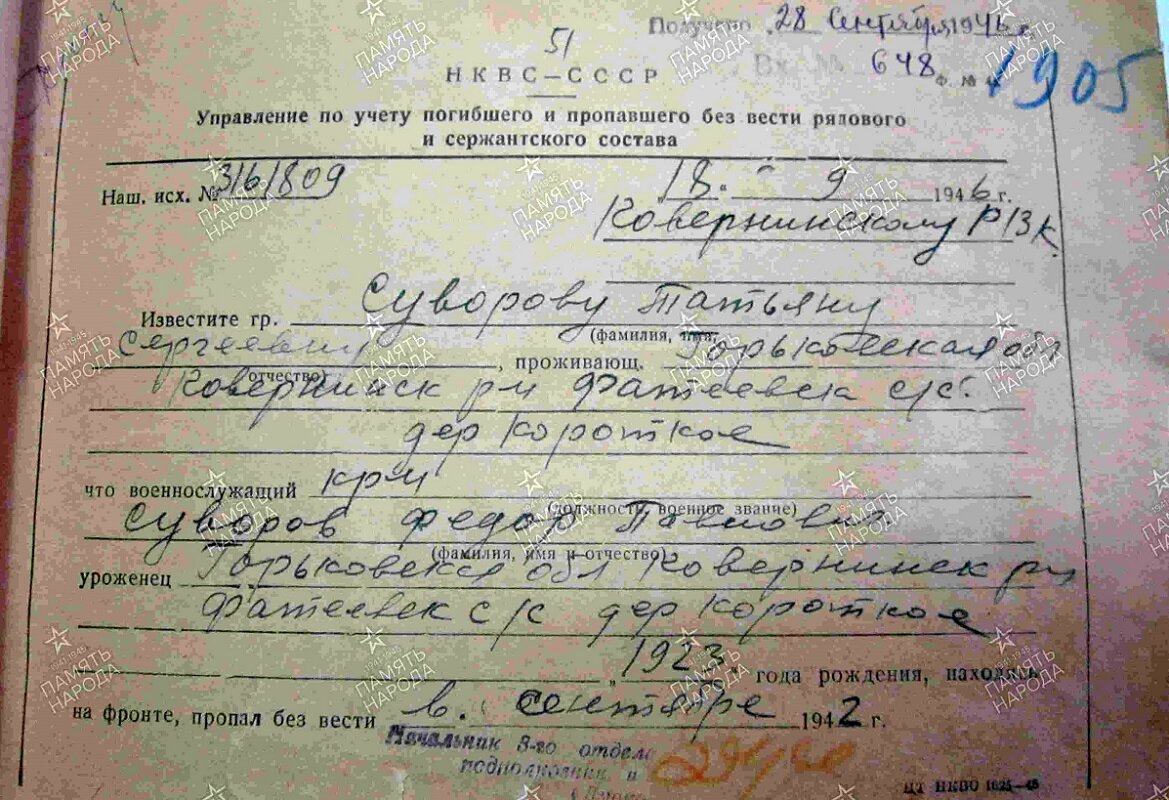 Получено 28 Сентября 1946 г.
51
Вх № 648
НКВС—СССР
Ф. № 4
1905
Управление по учету погибшего и пропавшего без вести рядового
и сержантского состава
Наш. исх. № 3161809
18. 9 1946 г.
Ковернинскому РВК
Известите гр. Суворову Татьяну
(фамилия, имя,
Сергеевну, проживающ. Горьковская обл
отчество)
Ковернинск р-н Фатеевск с/с.
дер Короткое
что военнослужащий кр-ц
(должность, военное звание)
Суворов Федор Павлович
(фамилия, имя и отчество)
уроженец Горьковская обл Ковернинск р-н
Фатеевск с/с дер Короткое
1923 года рождения, находясь
на фронте, пропал без вести в сентябре 1942 г.
Начальник 3-го отдела
подполковник и
ЦТ НКВО 1625—45
ПАМЯТЬ
НАРОДА